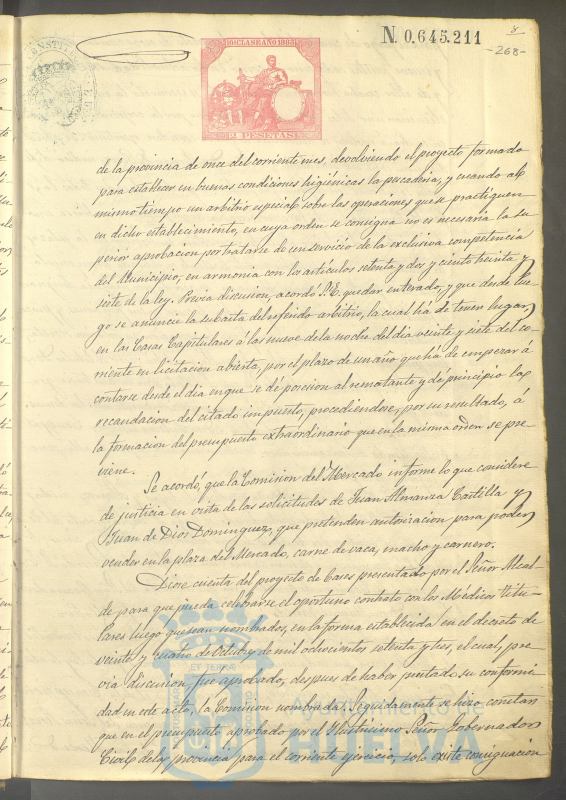 N. 0.645.211
8
-268-
10ª CLASE AÑO 1883
2 PESETAS
de la provincia de once del corriente mes, devolviendo el proyecto formado
para establecer en buenas condiciones higiénicas la pescaderia, y creando al
mismo tiempo un arbitrio especial sobre las operaciones que se practiquen
en dicho establecimiento, en cuya orden se consigna no es necesaria la su
perior aprobacion por tratarse de un servicio de la exclusiva competencia
del Municipio, en armonia con los artículos setenta y dos y ciento treinta y
siete de la ley. Previa discusion, acordó S. E. quedar enterado, y que desde lue-
go se anuncie la subasta del referido arbitrio, la cual há de tener lugar,
en las Casas Capitulares á las nueve de la noche del dia veinte y siete del co-
rriente en licitacion abierta, por el plazo de un año que há de empezar á
contarse desde el dia en que se dé posesion al rematante y dé principio la
recaudacion del citado impuesto, procediendose, por su resultado, á
la formacion del presupuesto extraordinario que en la misma orden se pre-
viene.
Se acordó, que la Comision del Mercado informe lo que considere
de justicia en vista de las solicitudes de Juan Almanza Castilla y
Juan de Dios Dominguez, que pretenden autorizacion para poder
vender en la plaza del Mercado, carne de vaca, macho y carnero.
Diose cuenta del proyecto de bases presentado por el Señor Alcal-
de para que pueda celebrarse el oportuno contrato con los Medicos titu-
lares luego que sean nombrados, en la forma establecida en el decreto de
veinte y cuatro de Octubre de mil ochocientos setenta y tres, el cual, pre-
via discusion fue aprobado, despues de haber juntado su conformi-
dad en este acto, la Comision nombrada. Seguidamente se hizo constar
que en el presupuesto aprobado por el Ilustrisimo Señor Gobernador
Civil de la provincia para el corriente ejercicio, solo existe consignacion
AYUNTAMIENTO DE
HUELVA